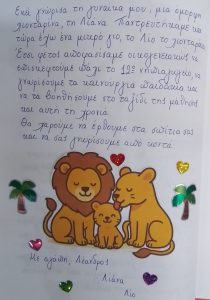 Εκεί γνώρισα τη γυναίκα μου, μια όμορφη
λιονταρίνα, τη Λιάνα. Παντρευτήκαμε και
τώρα έχω ένα μικρό γιο, το Λίο το λιονταράκι.
Έτσι φέτος αποφασίσαμε οικογενειακώς να
επισκεφτούμε πάλι το 12º νηπιαγωγείο, να
γνωρίσουμε τα καινούργια παιδάκια και
να τα βοηθήσουμε στο ταξίδι της μάθησης
και αυτή τη χρονιά.
Θα χαρούμε να έρθουμε στα σπίτια σας
και να σας γνωρίσουμε από κοντά.
Με αγάπη, Λέανδρος
Λιάνα
Λίο